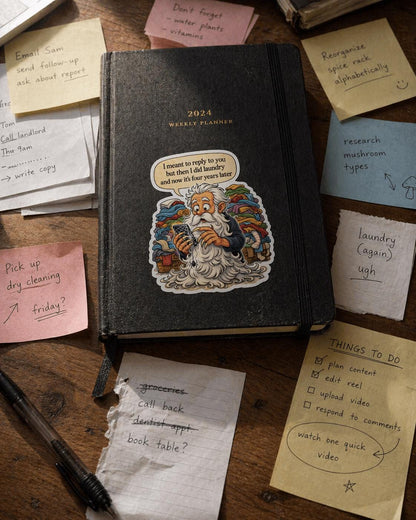 Email Sam
send follow-up
ask about report
Don't forget
- water plants
- vitamins
Reorganize
spice rack
alphabetically
Call landlord
Thu 9am
→ write copy
2024
WEEKLY PLANNER
I meant to reply to you
but then I did laundry
and now it's four years later
research
mushroom
types
laundry
(again)
ugh
Pick up
dry cleaning
friday?
groceries
call back
dentist appt
book table?
THINGS TO DO
plan content
edit reel
upload video
respond to comments
watch one quick
video